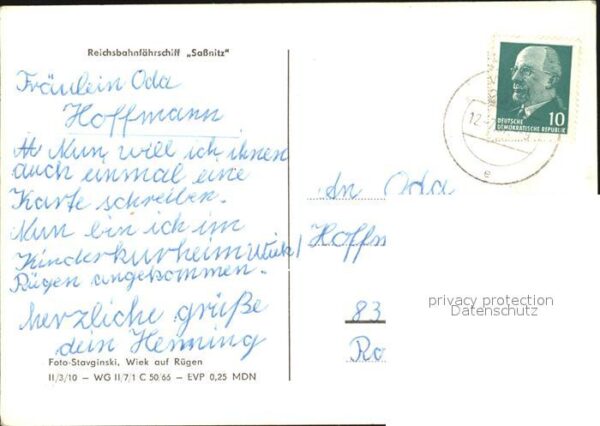 Reichsbahnfährschiff „Saßnitz“
Fräulein Oda
Hoffmann
Nun will ich ihnen
auch einmal eine
Karte schreiben.
Nun bin ich im
Kinderkurheim Wiek/
Rügen angekommen.
herzliche grüße
dein Henning
Foto-Stavginski, Wiek auf Rügen
II/3/10 – WG II/7/1 C 50/66 – EVP 0,25 MDN
10
DEUTSCHE
DEMOKRATISCHE REPUBLIK
12.
e
An Oda
Hoffm
83
Ro
privacy protection
Datenschutz